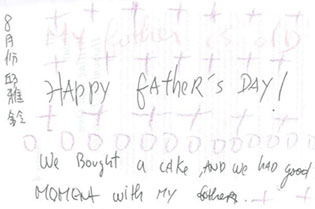 8月份邱雅鈴
My father is old
HAPPY fATHeR'S DAY!
We Bought a CAKE, AND we HAD good
MOMENT with MY fathers.